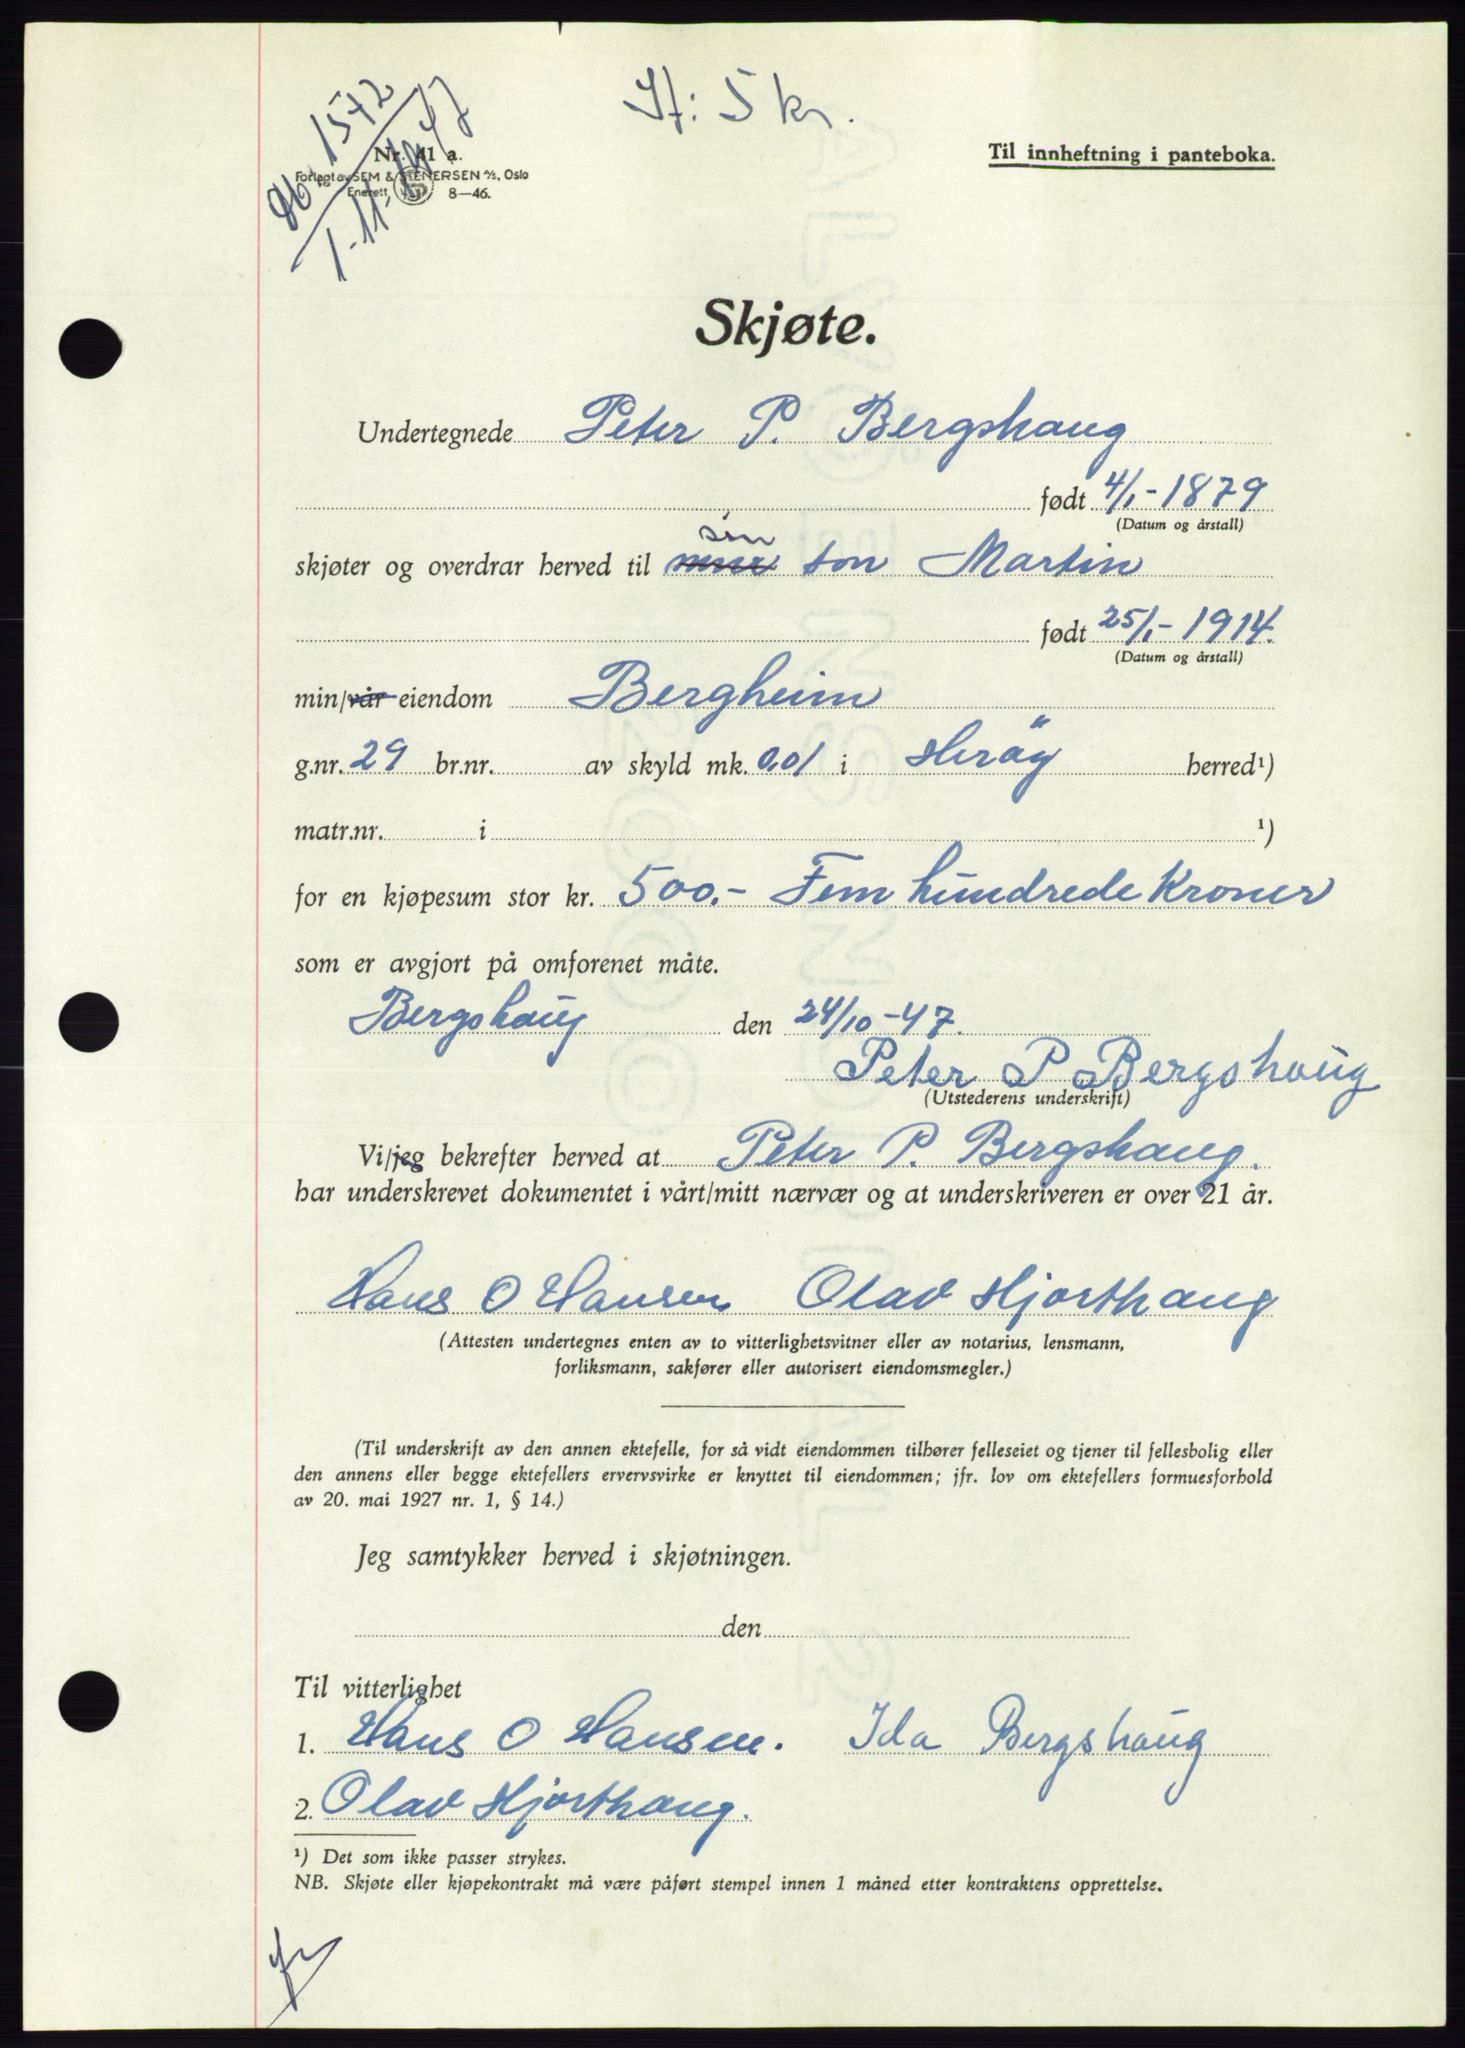 St: 5 kr.
Db. 1572
1-11-1947
Nr. 41 a.
Til innheftning i panteboka.
Forlagt av SEM & STENERSEN A/S, Oslo
Enerett 8—46.
Skjøte.
Undertegnede Peter P. Bergshaug
født 4/1-1879
(Datum og årstall)
sin
skjøter og overdrar herved til son Martin
født 25/1-1914.
(Datum og årstall)
min/vår eiendom Bergheim
g.nr. 29 br.nr. av skyld mk. 0,01 i Herøy herred¹)
matr.nr. i ¹)
for en kjøpesum stor kr. 500.- Fem hundrede Kroner
som er avgjort på omforenet måte.
Bergshaug den 24/10-47.
Peter P Bergshaug
(Utstederens underskrift)
Vi/jeg bekrefter herved at Peter P. Bergshaug.
har underskrevet dokumentet i vårt/mitt nærvær og at underskriveren er over 21 år.
Hans O Hansen Olav Hjorthaug
(Attesten undertegnes enten av to vitterlighetsvitner eller av notarius, lensmann,
forliksmann, sakfører eller autorisert eiendomsmegler.)
(Til underskrift av den annen ektefelle, for så vidt eiendommen tilhører felleseiet og tjener til fellesbolig eller
den annens eller begge ektefellers ervervsvirke er knyttet til eiendommen; jfr. lov om ektefellers formuesforhold
av 20. mai 1927 nr. 1, § 14.)
Jeg samtykker herved i skjøtningen.
den
Til vitterlighet
1. Hans O Hansen. Ida Bergshaug
2. Olav Hjorthaug.
¹) Det som ikke passer strykes.
NB. Skjøte eller kjøpekontrakt må være påført stempel innen 1 måned etter kontraktens opprettelse.